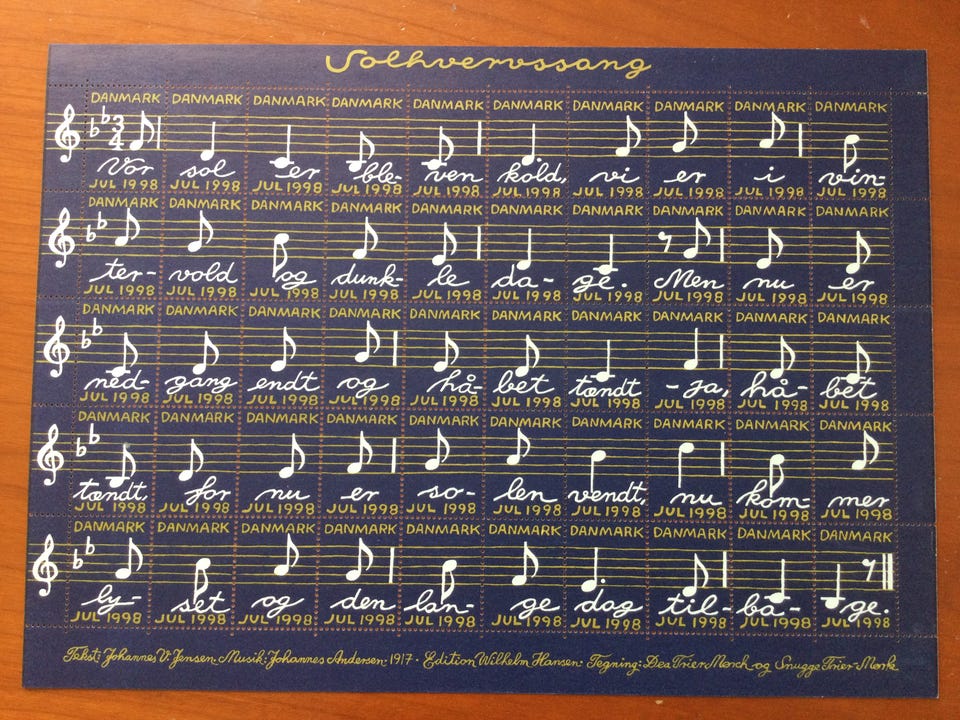 Solhvervssang
DANMARK DANMARK DANMARK DANMARK DANMARK DANMARK DANMARK DANMARK DANMARK DANMARK
3
4
Vor sol er ble- ven kold, vi er i vin-
JUL 1998 JUL 1998 JUL 1998 JUL 1998 JUL 1998 JUL 1998 JUL 1998 JUL 1998 JUL 1998 JUL 1998
DANMARK DANMARK DANMARK DANMARK DANMARK DANMARK DANMARK DANMARK DANMARK DANMARK
ter- vold og dunk- le da- ge. Men nu er
JUL 1998 JUL 1998 JUL 1998 JUL 1998 JUL 1998 JUL 1998 JUL 1998 JUL 1998 JUL 1998 JUL 1998
DANMARK DANMARK DANMARK DANMARK DANMARK DANMARK DANMARK DANMARK DANMARK DANMARK
ned- gang endt og hå- bet tændt - ja, hå- bet
JUL 1998 JUL 1998 JUL 1998 JUL 1998 JUL 1998 JUL 1998 JUL 1998 JUL 1998 JUL 1998 JUL 1998
DANMARK DANMARK DANMARK DANMARK DANMARK DANMARK DANMARK DANMARK DANMARK DANMARK
tændt, for nu er so- len vendt, nu kom- mer
JUL 1998 JUL 1998 JUL 1998 JUL 1998 JUL 1998 JUL 1998 JUL 1998 JUL 1998 JUL 1998 JUL 1998
DANMARK DANMARK DANMARK DANMARK DANMARK DANMARK DANMARK DANMARK DANMARK DANMARK
ly- set og den lan- ge dag til- ba- ge.
JUL 1998 JUL 1998 JUL 1998 JUL 1998 JUL 1998 JUL 1998 JUL 1998 JUL 1998 JUL 1998 JUL 1998
Tekst: Johannes V. Jensen. Musik: Johannes Andersen 1917. Edition Wilhelm Hansen. Tegning: Dea Trier Mørch og Snugge Trier Mørk